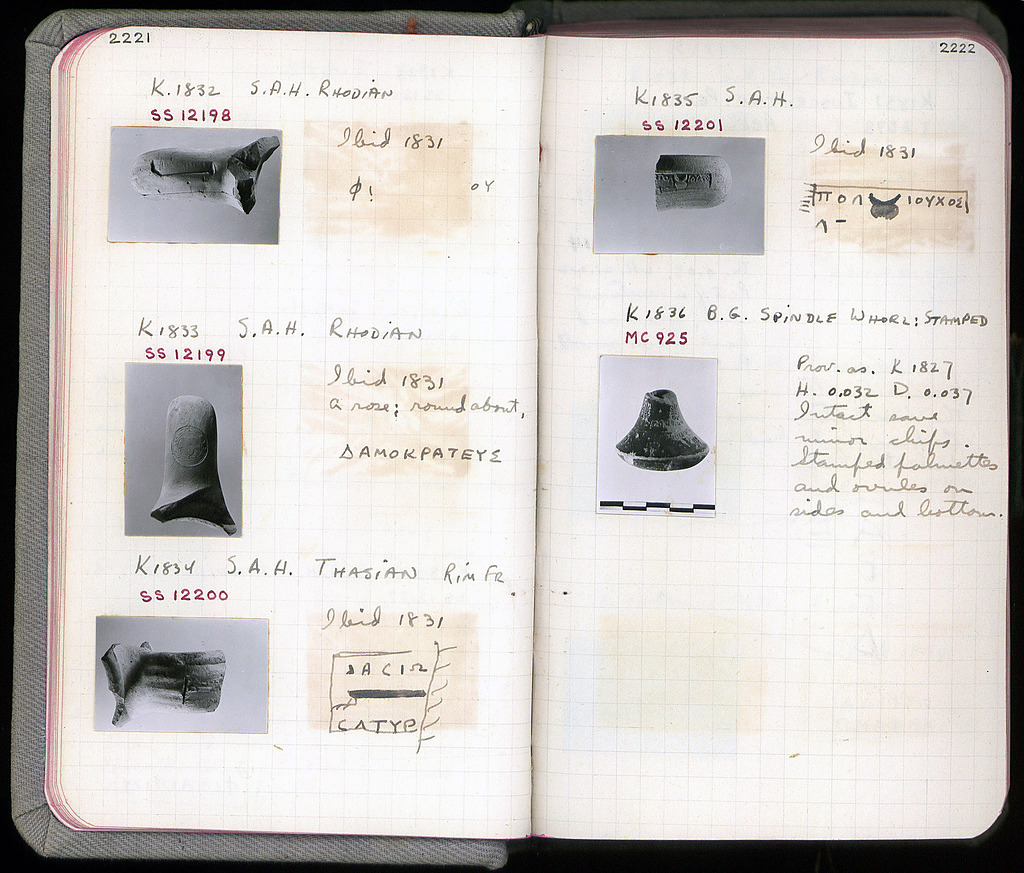 2221
K.1832 S.A.H. RHODIAN
SS 12198
Ibid 1831
Φ! ΟΥ
K1833 S.A.H. RHODIAN
SS 12199
Ibid 1831
a rose; round about,
ΔΑΜΟΚΡΑΤΕΥΣ
K1834 S.A.H. THASIAN RIM FR
SS 12200
Ibid 1831
ΘΑϹΙΩ
ϹΑΤΥΡ
2222
K1835 S.A.H.
SS 12201
Ibid 1831
ΠΟΛ ΙΟΥΧΟΣ
Λ-
K1836 B.G. SPINDLE WHORL; STAMPED
MC 925
Prov. as. K 1827
H. 0.032 D. 0.037
Intact save
minor chips.
Stamped palmettes
and ovules on
sides and bottom.